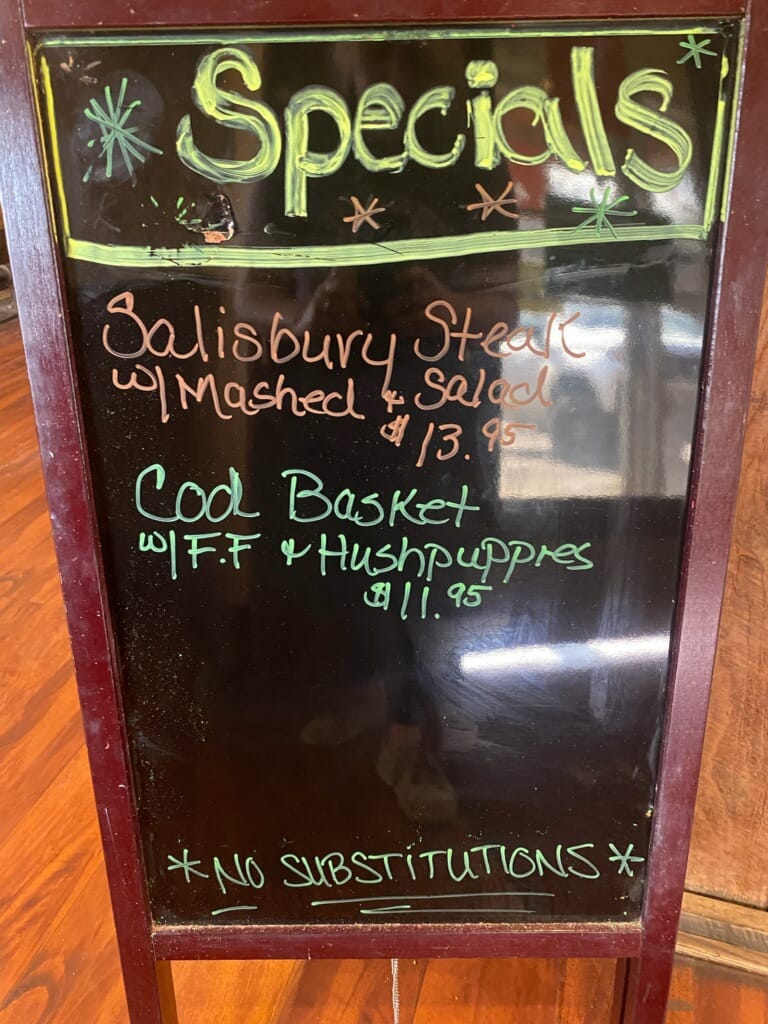 Specials
Salisbury Steak
w/ Mashed & Salad
$13.95
Cod Basket
w/ F.F & Hushpuppies
$11.95
*NO SUBSTITUTIONS*